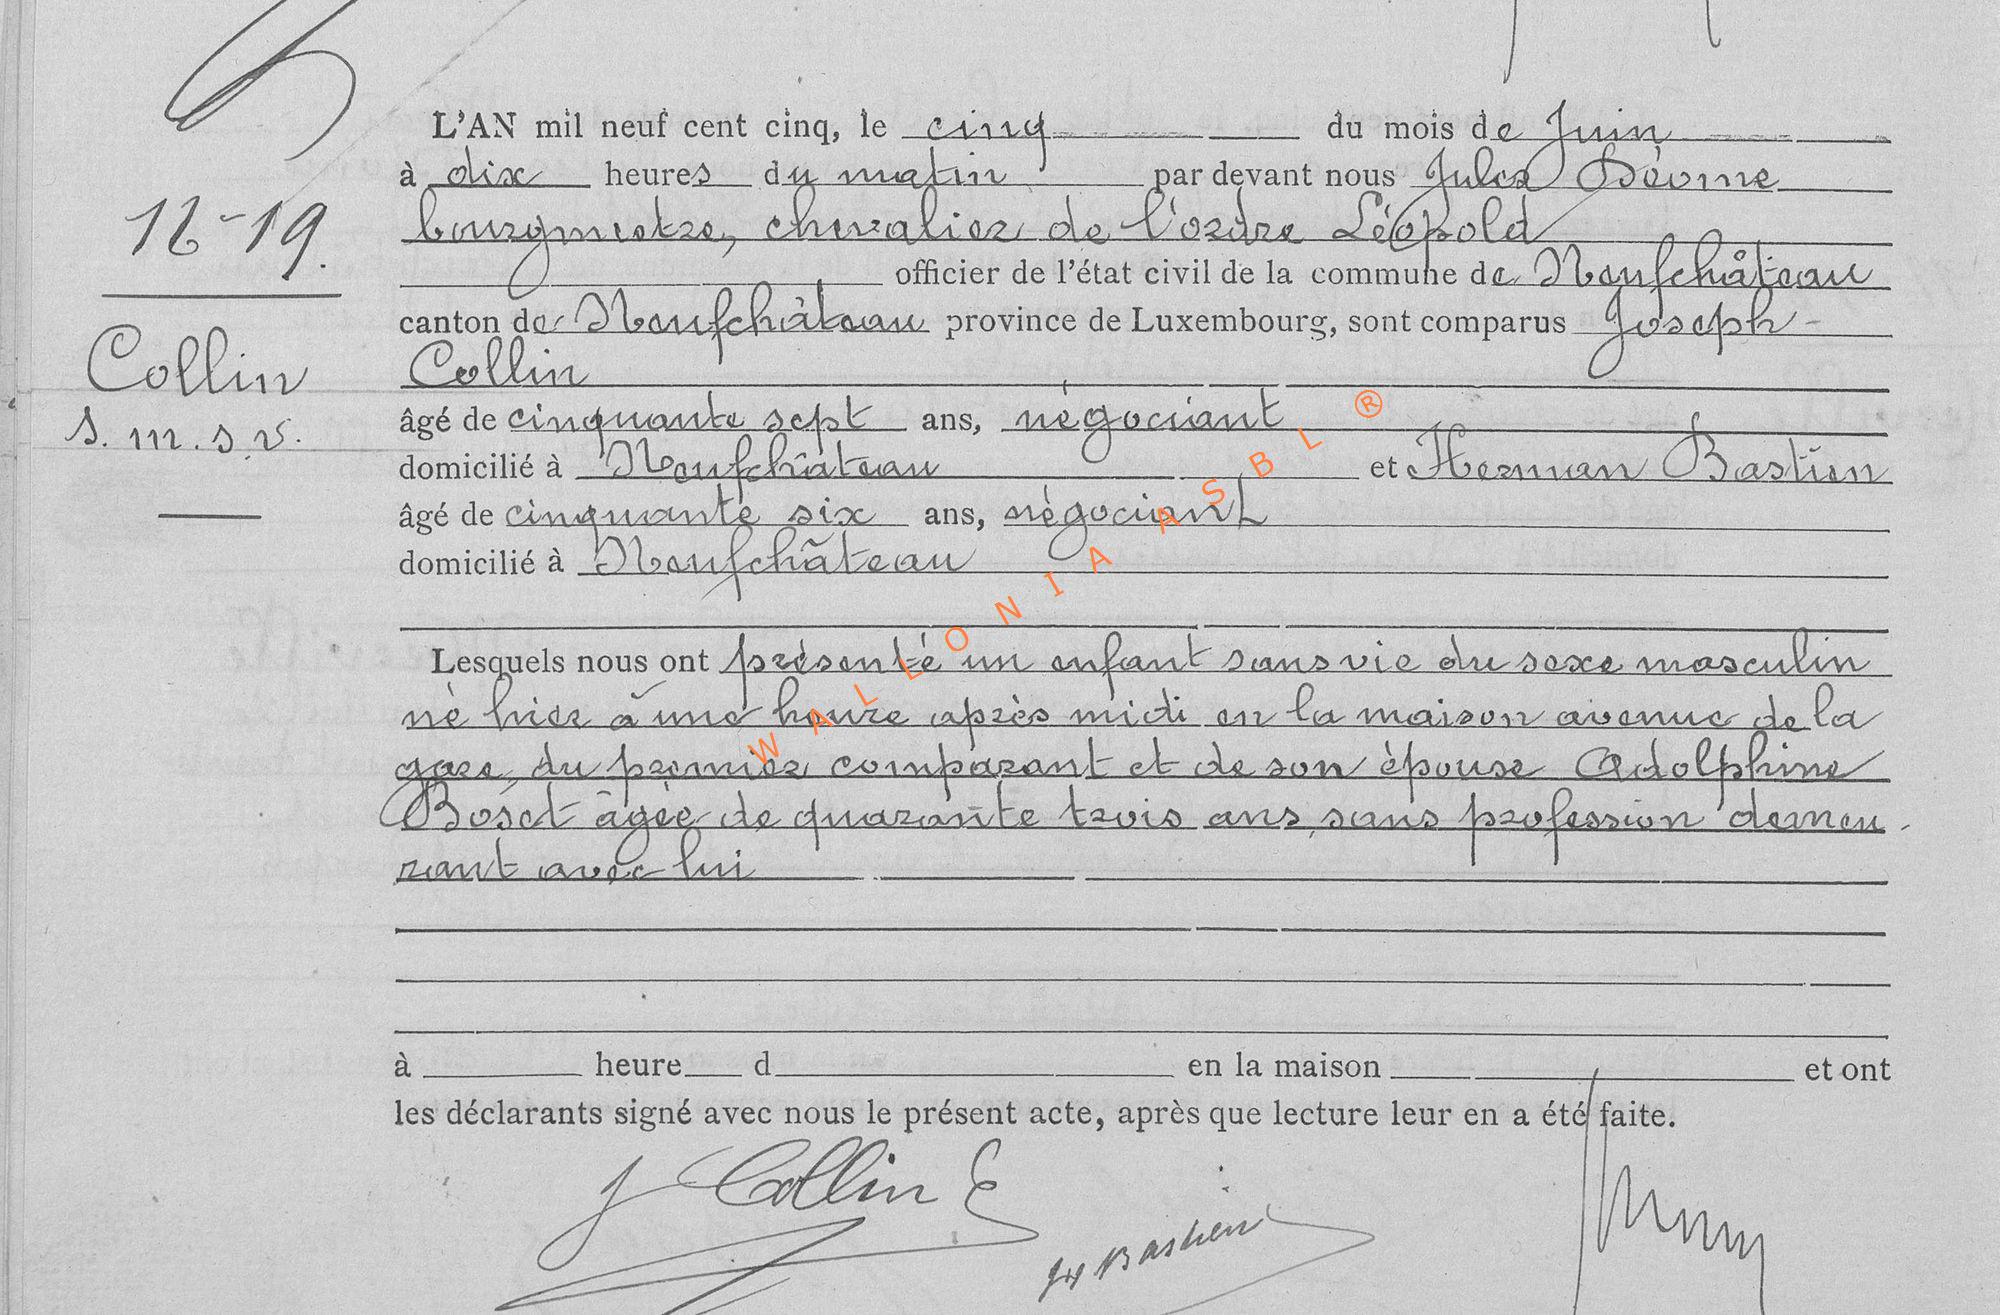 L'AN mil neuf cent cinq, le cinq du mois de Juin
à dix heures du matin par devant nous Jules
bourgmestre, chevalier de l'ordre Léopold
officier de l'état civil de la commune de Neufchâteau
canton de Neufchâteau province de Luxembourg, sont comparus Joseph
Collin
âgé de cinquante sept ans, négociant
domicilié à Neufchâteau et Herman Bastien
âgé de cinquante six ans, négociant
domicilié à Neufchâteau
Lesquels nous ont présenté un enfant sans vie du sexe masculin
né hier à une heure après midi en la maison avenue de la
gare, du premier comparant et de son épouse Adolphine
Boset âgée de quarante trois ans, sans profession demeu
rant avec lui
à heure d en la maison et ont
les déclarants signé avec nous le présent acte, après que lecture leur en a été faite.
16-19.
Collin
s. m. s. v.
J Collin
Bastien
WALLONIA ASBL ®